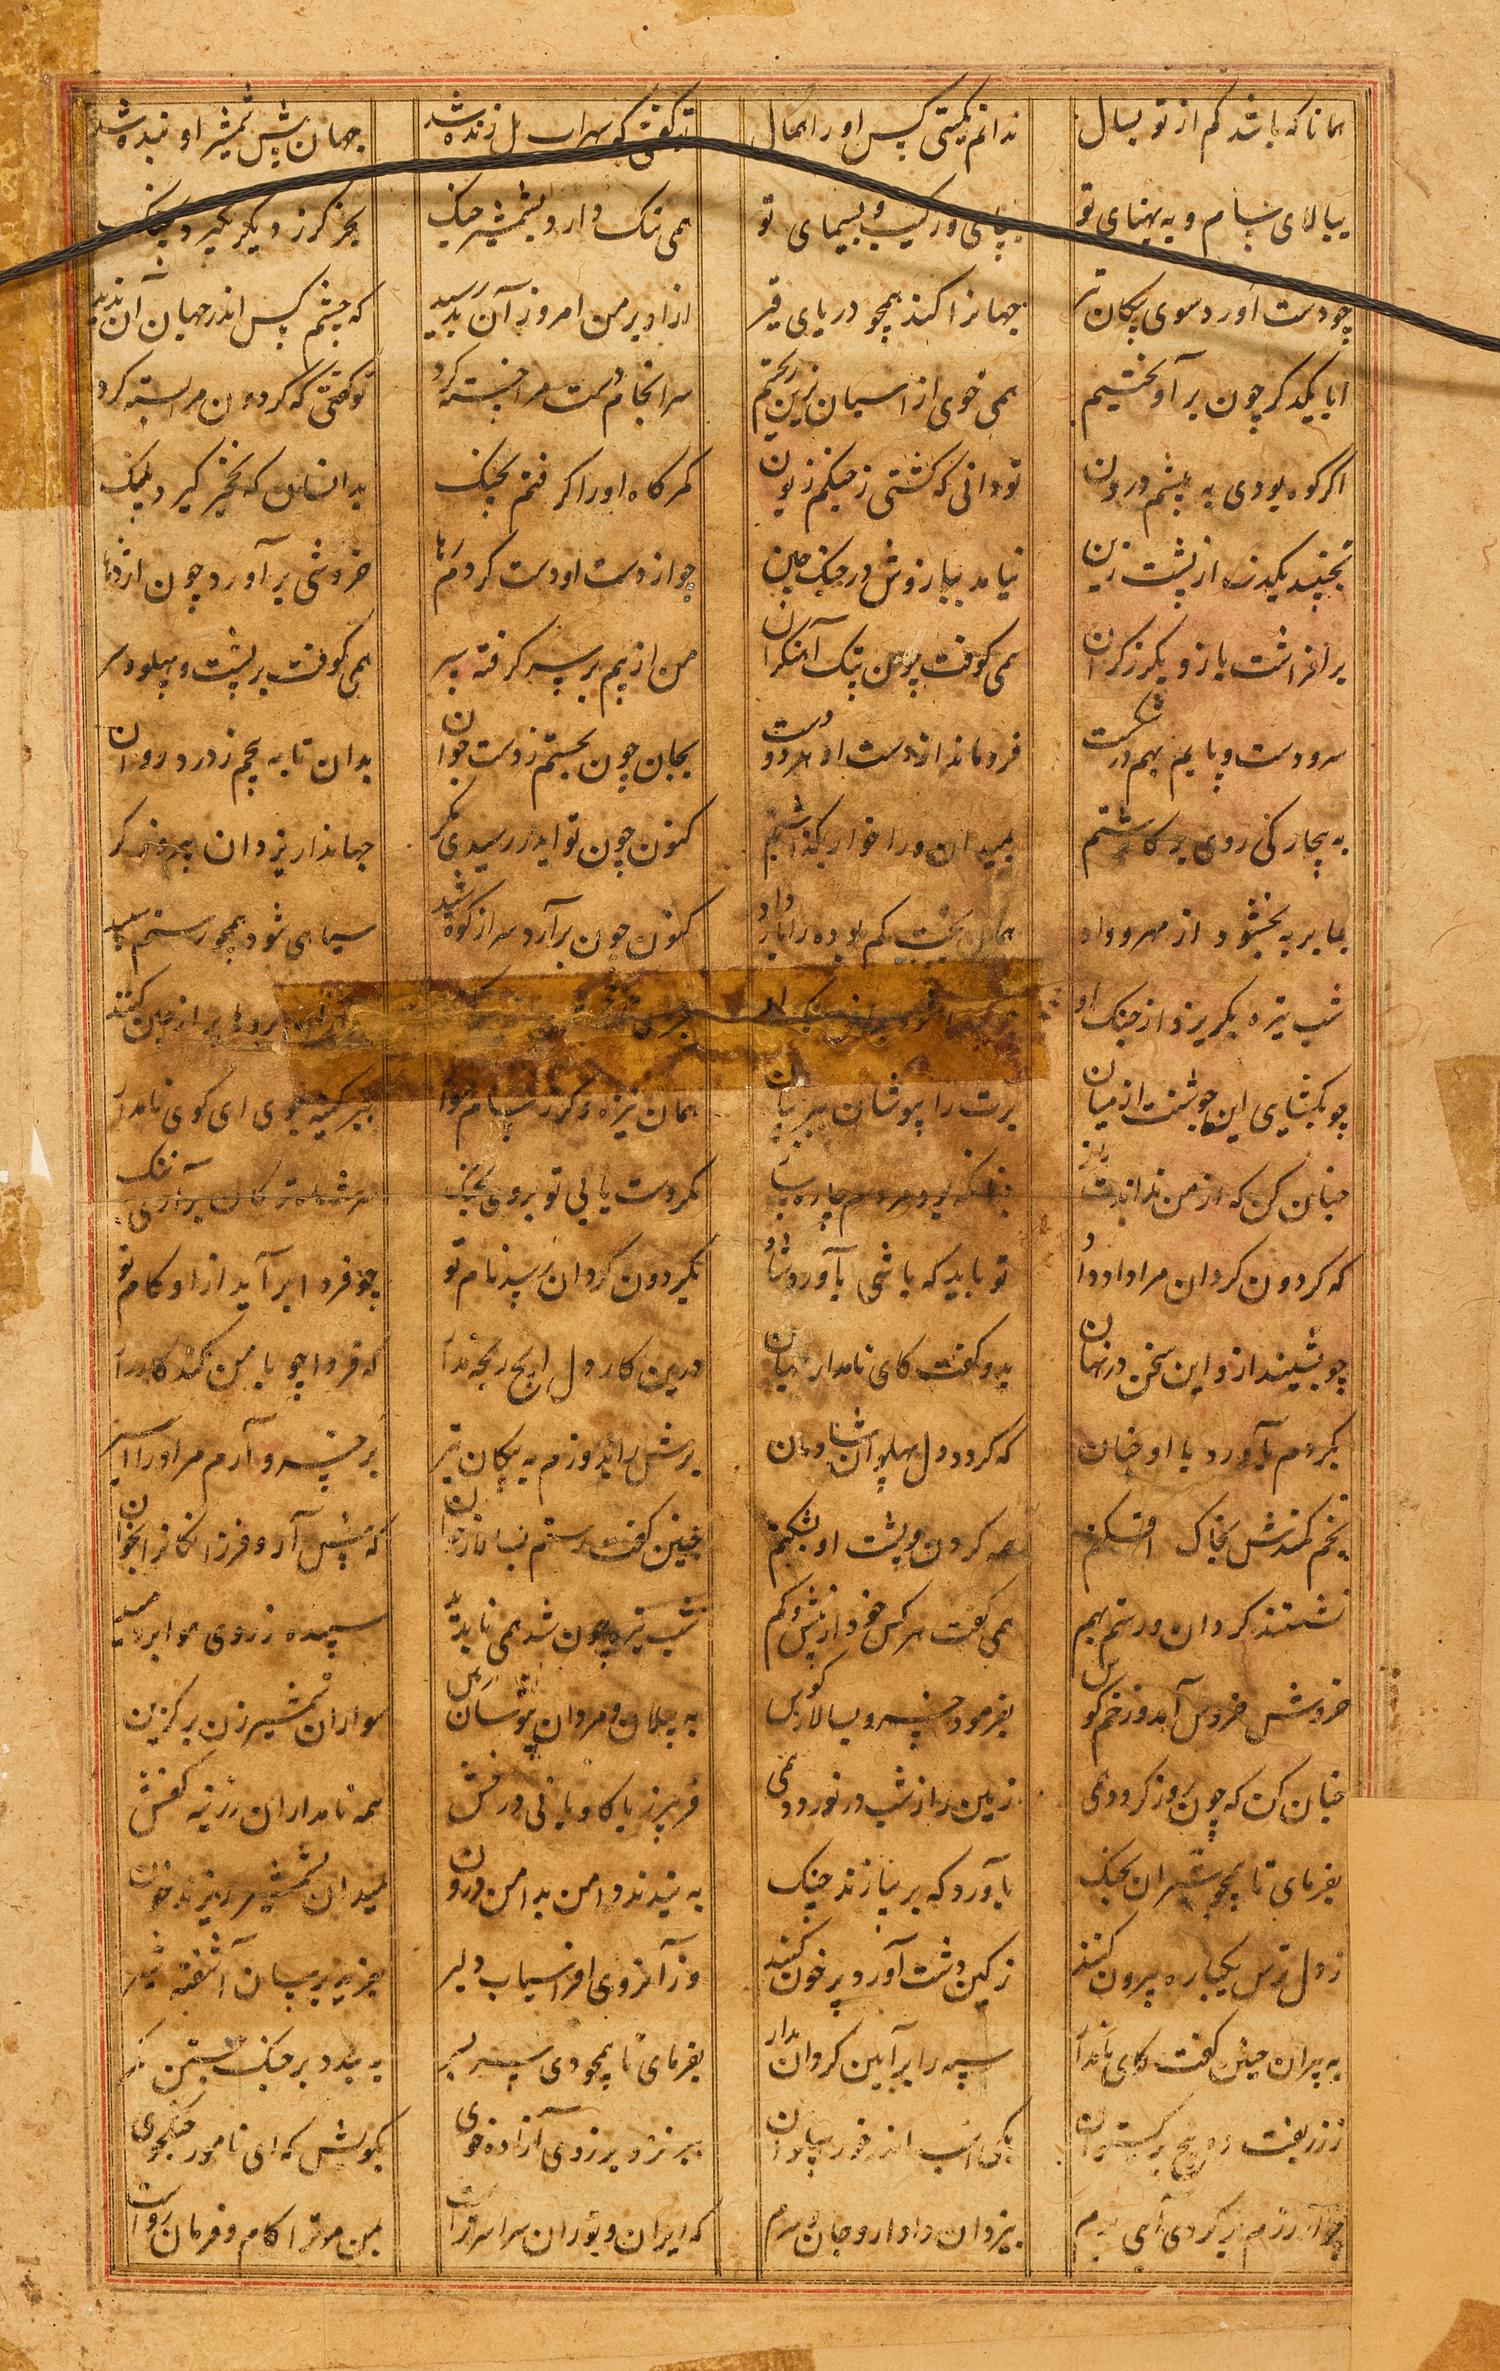 همانا که باشد کم از تو بسال ندانم بگیتی کس او را همال تو گفتی که سهراب یل زنده شد جهان پیش شمشیر او بنده شد
ببالای سام و به پهنای تو بپای و رکیب و بسیمای تو همی ننک دارد بشمشیر جنک بجز کرز دیکر نکیرد بچنک
چو دست آورد سوی پیکان تیر جهانرا کند همچو دریای قیر از او بر من امروز آن بد رسید که چشم کس اندر جهان آن ندید
ابا یکدکر چون برآویختیم همی خوی از اسپان فرو ریختیم سرانجام دست مرا خسته کرد تو گفتی که کردون مرا بسته کرد
اگر کوه بودی به پیشم درون تو دانی که کشتی ز جنکم زبون کمرکاه او را کرفتم بچنک بدانسان که نخجیر کیرد پلنک
نجنبید یکذره از پشت زین نیامد ببازوش در جنک چین چو از دست او دست کردم رها خروشی برآورد چون اژدها
برافراشت بازو بکرز کران همی کوفت بر من پتک آهنکران من از بیم بر سر کرفته سپر همی کوفت بر پشت و پهلو و سر
سر و دست و پایم بهم در شکست فرو ماند از دست او هر دو دست بجان چون بجستم ز دست جوان بدان تا به پیچم ز درد روان
به بیچارکی روی برکاشتم بمیدان ورا خوار بکذاشتم کنون چون تو ایدر رسیدی مکر جهاندار یزدان پیروزکر
بما بر به بخشود از مهر و داد همان بخت کم بوده را باز داد کنون چون برآرد سر از کوه شید سیاهی شود همچو رستم سپید
شب تیره بکریزد از جنک او
چو بکشای این جوشنت از میان برت را بپوشان ببر بیان همان نیزه و کرز سام سوار ببر کینه جوی ای کوی نامدار
چنان کن که از من نداندت باز مکر دست یابی تو بروی بجنک سر شاه ترکان برآری بننک
که کردون کردان مرا داد داد تو باید که باشی بآورد شاد بکردون کردان رسد نام تو چو فردا برآید از او کام تو
چو بشنید از و این سخن در نهان بدو کفت کای نامدار جهان درین کار دل ایچ رنجه مدار که فردا چو با من کند کارزار
بکردم بآورد با او چنان که کردد دل پهلوان شادمان برش را بدوزم به پیکان تیر بر خسرو آرم مر او را اسیر
بخم کمندش بخاک افکنم همه کردن و پشت او بشکنم چنین کفت رستم که پیش آر و فرزانکانرا بخوان
نشستند کردان و رستم بهم همی کفت هر کس خود از بیش و کم شب تیره چون شد همی ناپدید سپیده ز روی هوا بر دمید
خروش خروس آمد و زخم کوس بفرمود خسرو بسالار طوس به پیلان و مردان پوشان زمین سواران شمشیر زن برکزین
چنان کن که چون روز کردد همی زمین را ز شب در نوردد همی فریبرز با کاویانی درفش همه نامداران زرینه کفش
بفرمای تا همچو شیران بجنک بآورد که بر نیازند چنک به بندند دامن بدامن درون بمیدان بشمشیر ریزند خون
ز دل ترس یکباره بیرون کنند ز کین دشت آورد پر خون کنند وز آنروی افراسیاب دلیر بغرید برسان آشفته شیر
به پیران چنین کفت کای نامدار سپه را برآیین کردان بدار بفرمای تا همچو دی سر بسر به بندد بر جنک جستن کمر
ز زربفت ده پنج برکستوان ببر نزد برزوی آزاده خوی بکویش که ای نامور جنکجوی
بیزدان دادار و جان سرم که ایران و توران سراسر تراست بمن مر ترا کام و فرمان رواست